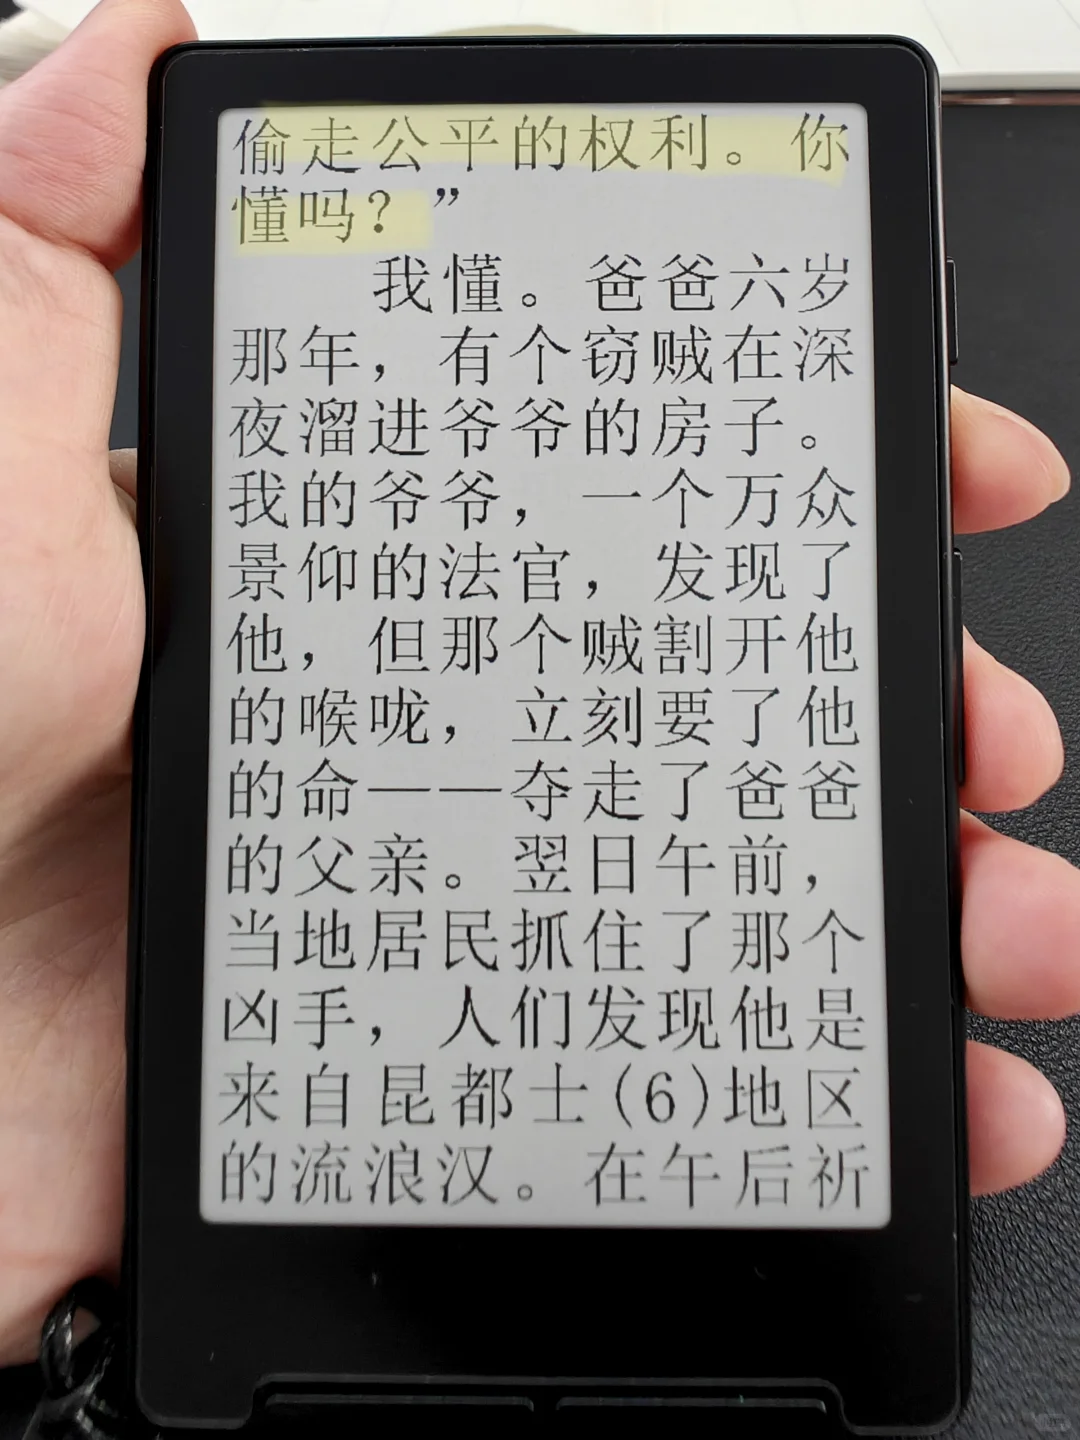 偷走公平的权利。你
懂吗？”
我懂。爸爸六岁
那年，有个窃贼在深
夜溜进爷爷的房子。
我的爷爷，一个万众
景仰的法官，发现了
他，但那个贼割开他
的喉咙，立刻要了他
的命——夺走了爸爸
的父亲。翌日午前，
当地居民抓住了那个
凶手，人们发现他是
来自昆都士(6)地区
的流浪汉。在午后祈